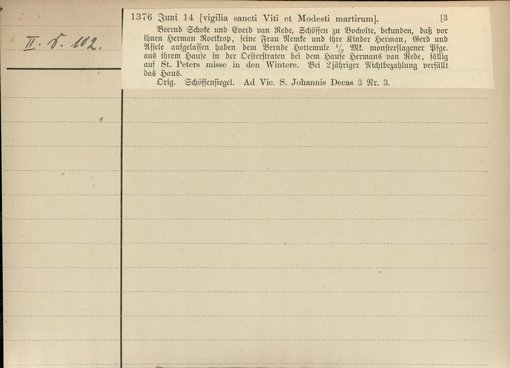 II. d. 102.
1376 Juni 14 [vigilia sancti Viti et Modesti martirum]. [3
Beernd Schoke und Everd van Rede, Schöffen zu Bocholte, bekunden, daß vor
ihnen Herman Roetkrop, seine Frau Nemke und ihre Kinder Herman, Gerd und
Assele aufgelassen haben dem Bernde Hottemule ½ Mk. monsterslagener Pfge.
aus ihrem Hause in der Oesterstraten bei dem Hause Hermans van Rede, fällig
auf St. Peters misse in den Wintere. Bei 2jähriger Nichtbezahlung verfällt
das Haus.
Orig. Schöffensiegel. Ad Vic. S. Johannis Decas 3 Nr. 3.